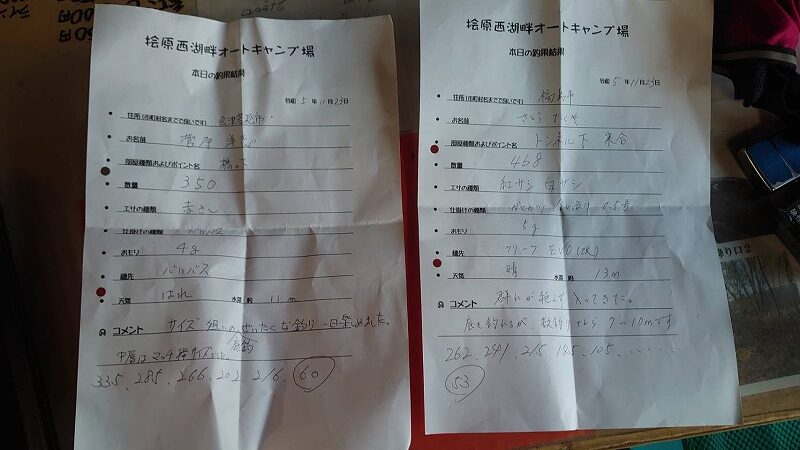 桧原西湖畔オートキャンプ場
本日の釣果結果
令和 5年 11月 23日
住所(市町村名までで良いです) 会津若松市
お名前 菅原
部屋種類およびポイント名 橋下
数量 350
エサの種類 赤さし
仕掛けの種類 バリバス
おもり 4g
穂先 バリバス
天気 はれ 水深 約 11m
コメント サイズ ぜいたくな釣り 一日楽しめました。
中層はマッチ棒サイズ
335. 285. 266. 202. 216. 60
桧原西湖畔オートキャンプ場
本日の釣果結果
令和 5年 11月 23日
住所(市町村名までで良いです) 福島市
お名前 さとう たくや
部屋種類およびポイント名 トンネル下 乗合
数量 468
エサの種類 紅サシ 白サシ
仕掛けの種類 0.5号
おもり 5g
穂先 クリーフ
天気 晴 水深 約 13m
コメント 群れが絶えず入ってきた。
底も釣れるが 数釣りなら 7〜10mです
262. 241. 215. 145. 105.
53